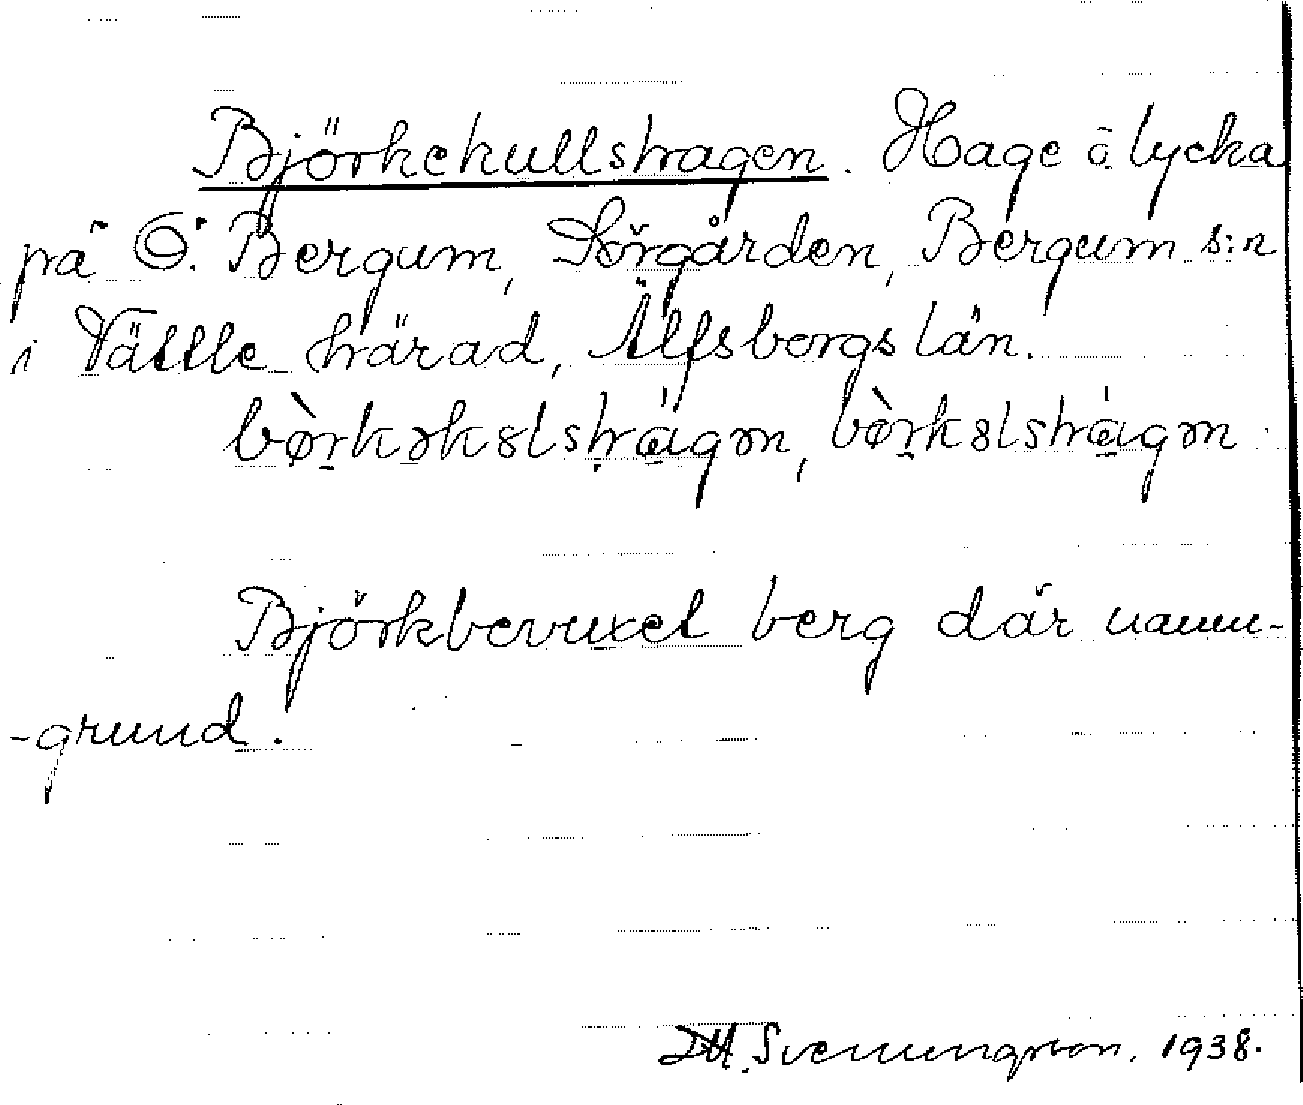 Björkekullshagen. Hage å lycka
på Ö. Bergum, Sörgården, Bergum s:n
i Vättle härad, Älfsborgs län.
bø̀rkəkslshágən, bø̀rkslshágən
Björkbevuxet berg där namn-
-grund.
Svenungsson. 1938.